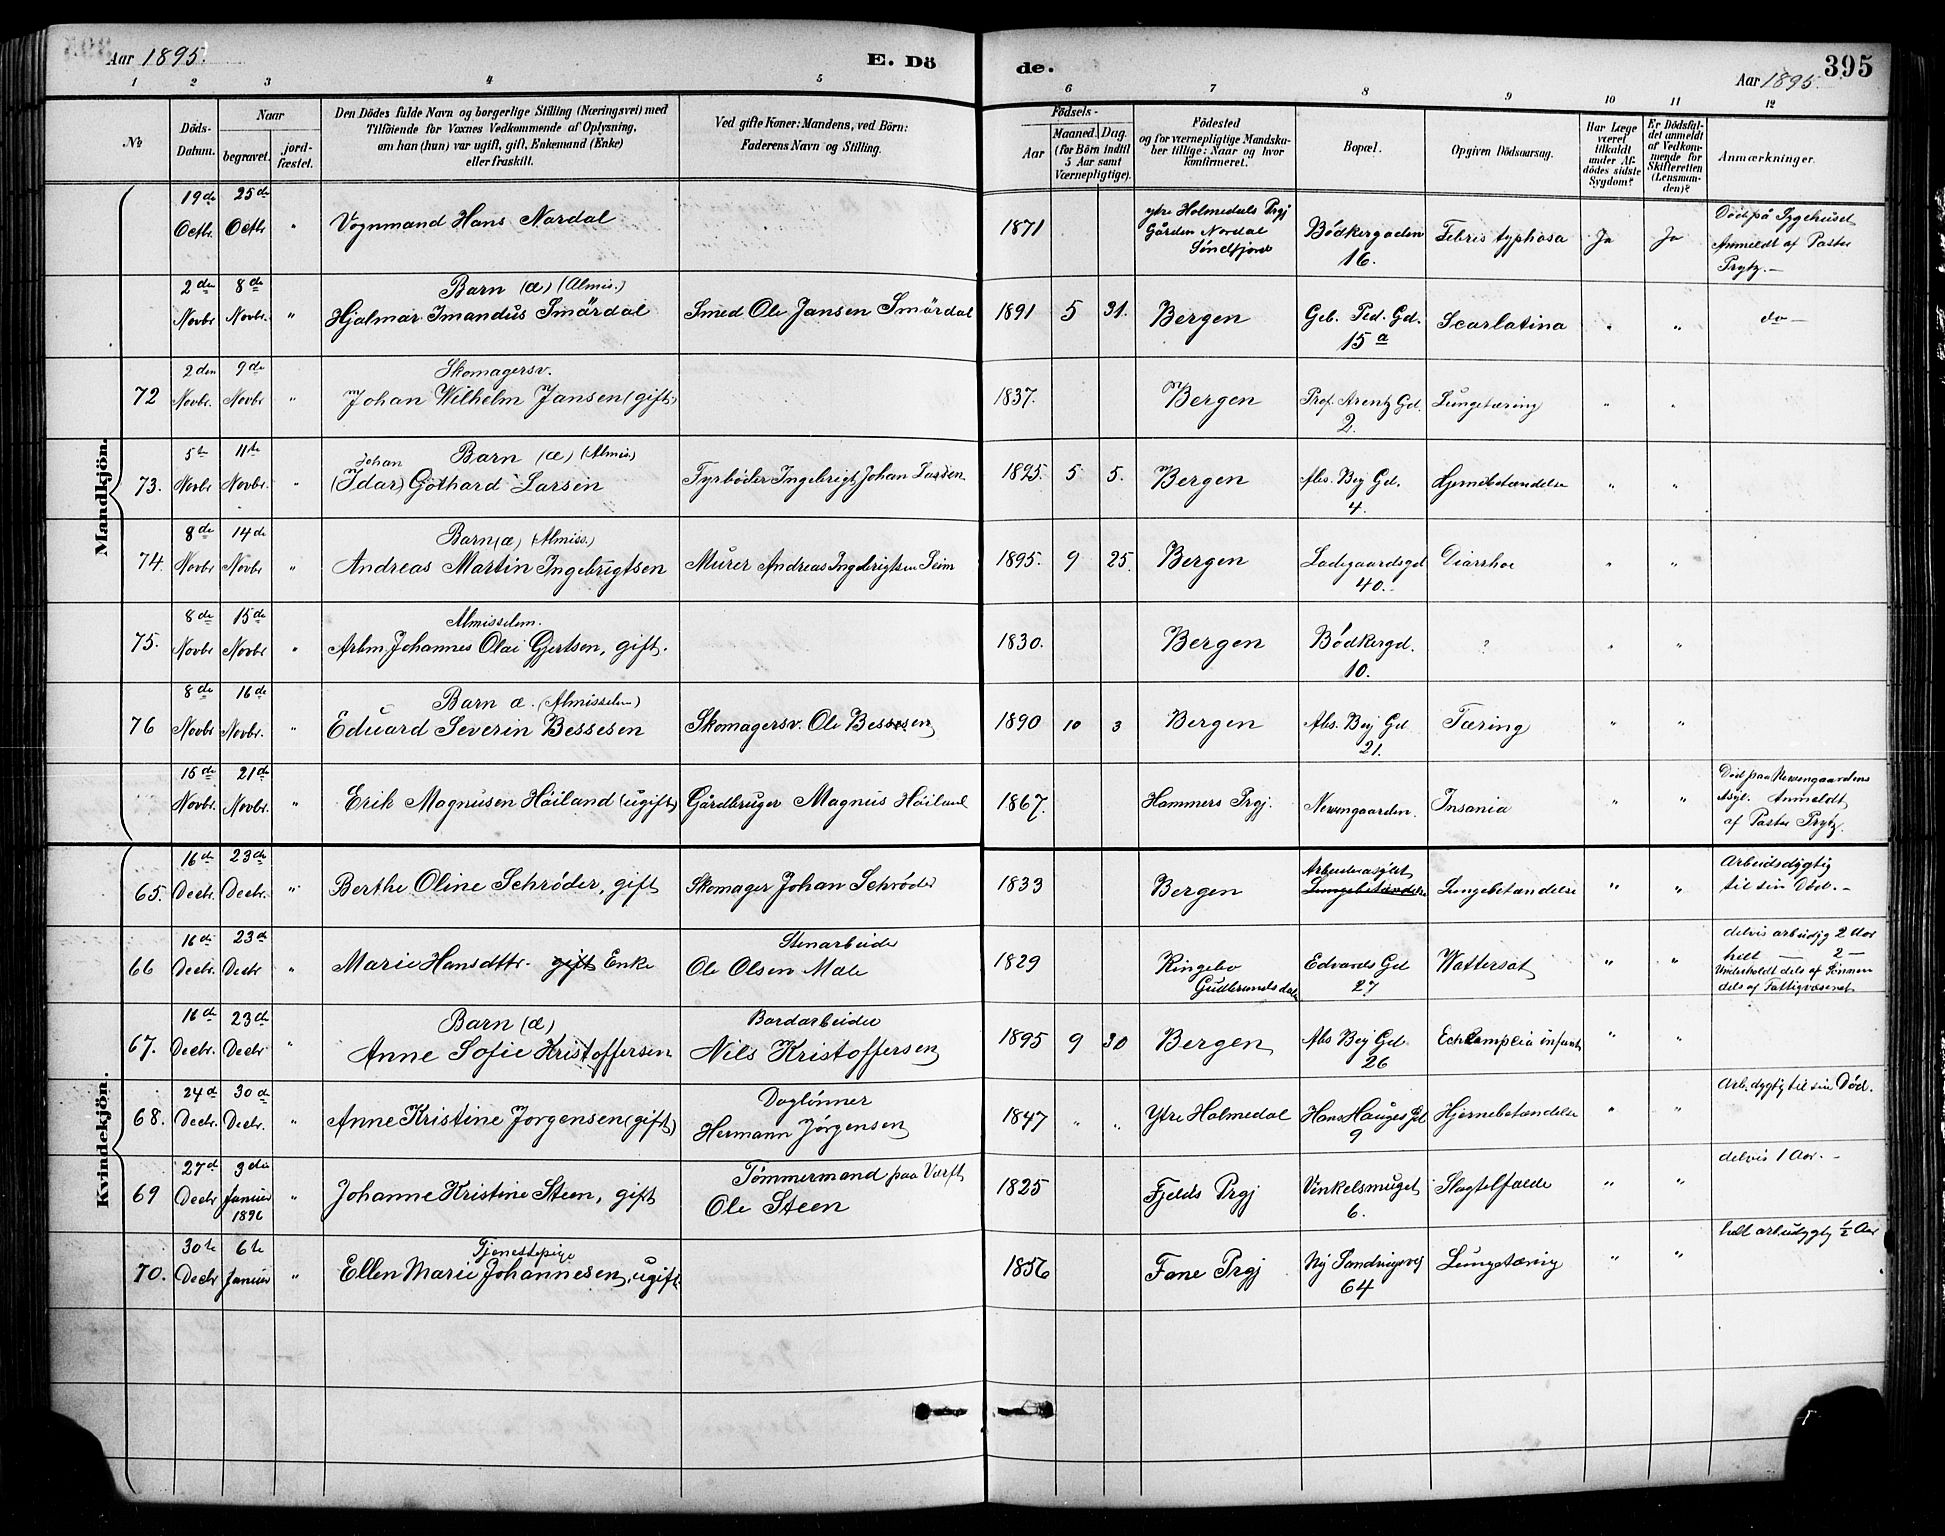 Aar 1895.
E. Dö
de.
395
Aar 1895.
1 2 3 4 5 6 7 8 9 10 11 12
No
Döds-Datum.
Naar
begravet.
jord-fæstet.
Den Dödes fulde Navn og borgerlige Stilling (Næringsvei) med
Tilföiende for Voxnes Vedkommende af Oplysning,
om han (hun) var ugift, gift, Enkemand (Enke)
eller fraskilt.
Ved gifte Koner: Mandens, ved Börn:
Faderens Navn og Stilling.
Födsels-
Aar
Maaned. Dag.
(for Börn indtil
5 Aar samt
Værnepligtige).
Födested
og for værnepligtige Mandska-
ber tillige: Naar og hvor
konfirmeret.
Bopæl.
Opgiven Dödsaarsag.
Har Læge
været
tilkaldt
under Af-
dödes sidste
Sygdom?
Er Dödsfal-
det anmeldt
af Vedkom-
mende for
Skifteretten
(Lensman-
den)?
Anmærkninger.
Mandkjön.
19de Octbr. 25de Octbr " Vognmand Hans Nordal 1871 ytre Holmedals Prgj Gården Nordal Søndfjord Bødkergaden 16. Febris typhosa Ja Ja Død på Sygehuset Anmeldt af Pastor Prytz.-
2den Novbr. 8de Novbr. " Barn (æ) (Almis.) Hjalmar Imandus Smördal Smed Ole Jansen Smördal 1891 5 31. Bergen Geb. Ped. Gd. 15a Scarlatina " " do-
72 2den Novbr. 9de Novbr " Skomagersv. Johan Wilhelm Jansen (gift) 1837. Bergen Prof. Arentz Gd. 2. Lungetæring " "
73. 5te Novbr 11te Novbr. " Barn (æ) (Almis) Johan (Idar) Gothard Larsen Fyrbøder Ingebrigt Johan Larsen 1895 5 5. Bergen Abs. Bey Gd. 4. Hjernebetændelse " "
74. 8de Novbr 14de Novbr " Barn (æ) (Almiss.) Andreas Martin Ingebrigtsen Murer Andreas Ingebrigtsen Seim 1895. 9 25. Bergen Ladegaardsgd 40.- Diarrhoe " "
75. 8de Novbr 15de Novbr " Almisselem. Arbm. Johannes Olai Gjertsen, gift. 1830. Bergen Bödkergd. 10. ? " "
76 8de Novbr 16de Novbr. " Barn æ. (Almisselem) Eduard Severin Bessesen Skomagersv. Ole Bessesen 1890 10 3 Bergen Abs. Bey Gd 21. Tæring " "
15de Novbr. 21de Novbr. " Erik Magnusen Höiland (ugift) Gårdbruger Magnus Höiland 1867. Hammers Prgj. Nevengaarden. Insania " " Död paa Nevengaardens Asyl. Anmeldt af Pastor Prytz.
Kvindekjön.
65. 16de Decbr. 23de Decbr. " Berthe Oline Schrøder, gift Skomager Johan Schrøder 1833 Bergen Arbeiderasylet Lungebetændelse Lungebetændelse " " Arbeidsdygtig til sin Död.-
66 16de Decbr. 23de Decbr " Marie Hansdttr. gift Enke Stenarbeider Ole Olsen Mæle 1829 Ringebo Gudbrandsdalen Edvards Gd 27 Wattersot " " delvis arbeidyg 2 Aar helt - 2 - Underholdt dels af Sönnen dels af Fattigvæsenet
67. 16de Decbr. 23de Decbr " Barn (æ) Anne Sofie Kristoffersen Bordarbeider Nils Kristoffersen 1895 9 30 Bergen Abs Bey Gd 26 Echlampsia infant " "
68. 24de Decbr. 30de Decbr. " Anne Kristine Jørgensen (gift) Daglønner Hermann Jørgensen 1847 " " Ytre Holmedal Hans Hauges Gd 9 Hjernebetændelse " " Arb.dygtig til sin Død.
69 27de Decbr 3die Januar 1896 " Johanne Kristine Steen, gift Tömmermand paa Værft Ole Steen 1825 Fjelds Prgj Vinkelsmuget 6. Slagtilfælde " " delvis 1 Aar.-
70. 30te Decbr 6te Januar " Tjenestepige Ellen Marie Johannesen, ugift 1856 Fane Prgj Ny Sandvigsvej 64 Lungetæring " " helt arbeidygtg ½ Aar